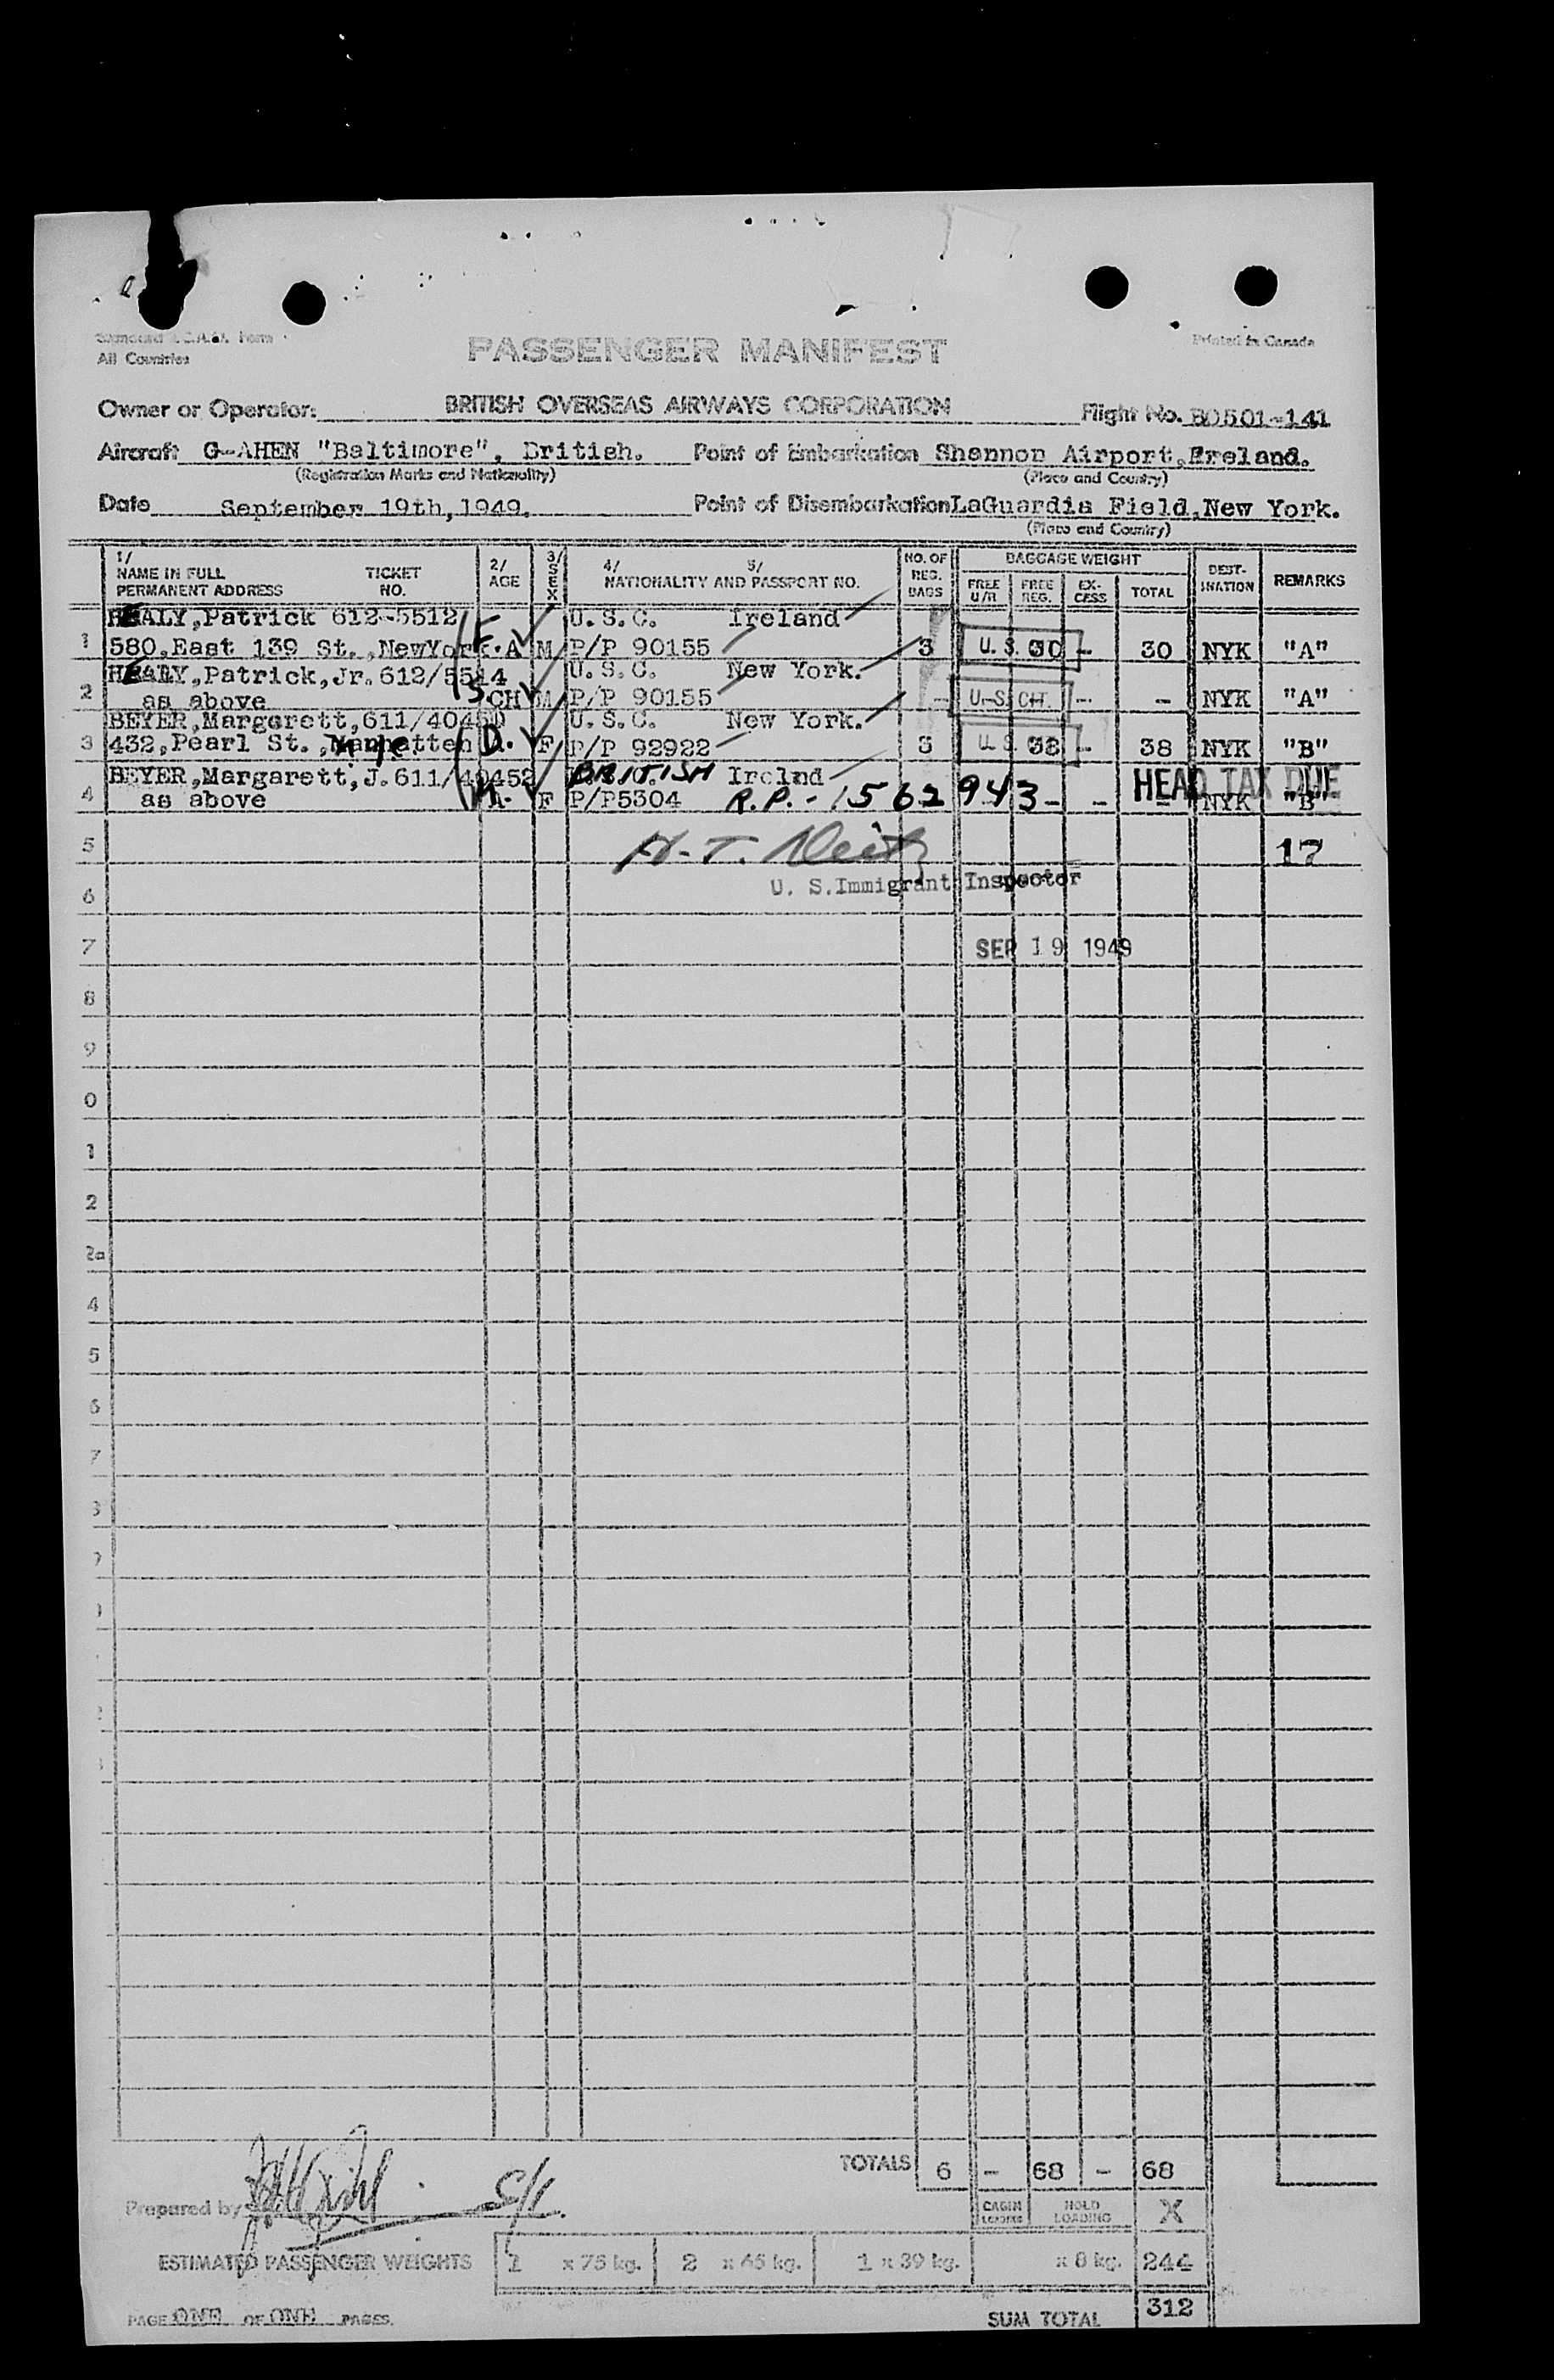 All Countries
PASSENGER MANIFEST
Printed in Canada
Owner or Operator: BRITISH OVERSEAS AIRWAYS CORPORATION Flight No. BO501-141
Aircraft G-AHEN "Baltimore", British. Point of Embarkation Shannon Airport, Ireland.
(Registration Marks and Nationality) (Place and Country)
Date September 19th, 1949. Point of Disembarkation LaGuardia Field, New York.
(Place and Country)
1/ NAME IN FULL PERMANENT ADDRESS TICKET NO. 2/ AGE 3/ SEX 4/ 5/ NATIONALITY AND PASSPORT NO. NO. OF REG. BAGS BAGGAGE WEIGHT FREE U/R FREE REG. EX-CESS TOTAL DEST-INATION REMARKS
HEALY, Patrick 612-5512 U.S.C. Ireland
1 580, East 139 St., NewYork F. A M P/P 90155 3 U.S. 30 - 30 NYK "A"
HEALY, Patrick, Jr. 612/5514 U.S.C. New York.
2 as above S CH M P/P 90155 - U.S. CIT. - - NYK "A"
BEYER, Margarett, 611/40450 U.S.C. New York.
3 432, Pearl St., Manhatten D. F P/P 92922 3 U.S. 38 - 38 NYK "B"
BEYER, Margarett, J. 611/40452 BRITISH Irelnd HEAD TAX DUE
4 as above M A. F P/P5304 R.P.-1562943 - - - NYK "B"
5 17
U. S. Immigrant Inspector
6
7 SEP 19 1949
8
9
0
1
2
2a
4
5
6
7
TOTALS 6 - 68 - 68
Prepared by
CABIN LOADING HOLD LOADING X
ESTIMATED PASSENGER WEIGHTS 1 x 75 kg. 2 x 65 kg. 1 x 39 kg. x 8 kg. 244
PAGE ONE OF ONE PAGES. SUM TOTAL 312